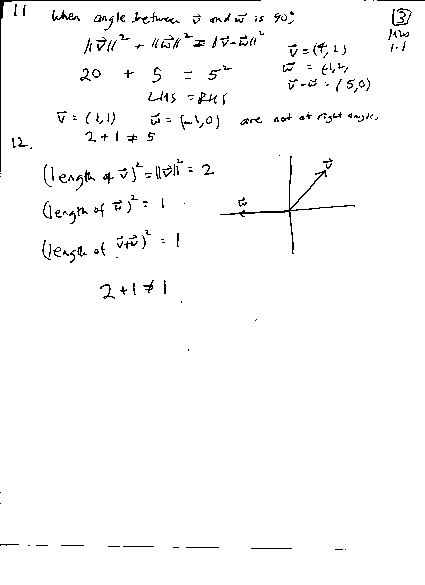 11 When angle between v⃗ and w⃗ is 90°,
‖v⃗‖² + ‖w⃗‖² = ‖v⃗-w⃗‖²
20 + 5 = 5²
LHS = RHS
3
HW
1.1
v⃗ = (4, 2)
w⃗ = (-1, 2)
v⃗-w⃗ = (5,0)
v⃗ = (1,1) w⃗ = (-1,0) are not at right angle.
2+1 ≠ 5
12.
(length of v⃗)² = ‖v⃗‖² = 2
(length of w⃗)² = 1
(length of v⃗+w⃗)² = 1
2+1 ≠ 1
v⃗
w⃗